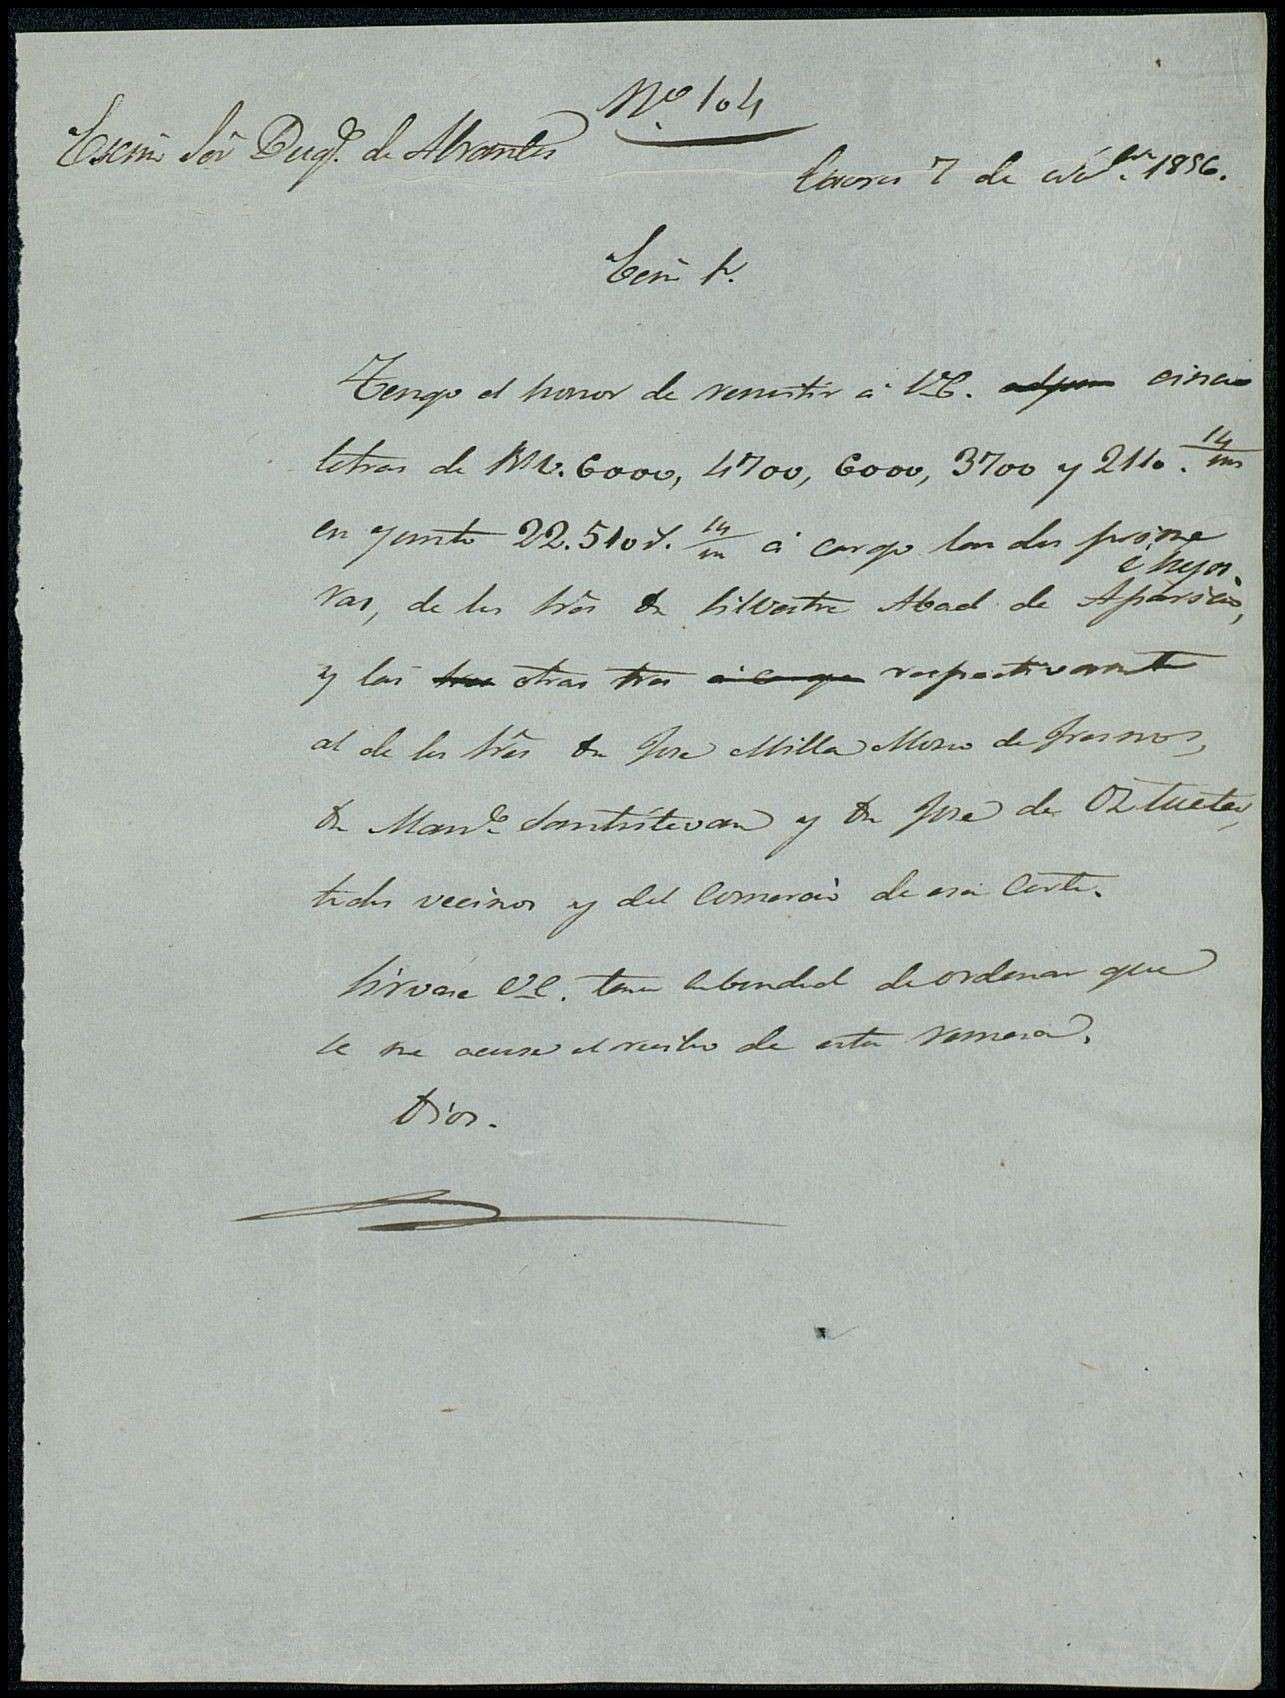 Nº 104
Excmo Sor Duqe de Abrantes
Caceres 7 de Nobre 1856.
Excmo Sr.
Tengo el honor de remitir á V.E. cinco
letras de Rvn. 6000, 4700, 6000, 3700 y 2110. 14/ms
en junto 22.510 r. 14/m á cargo las dos prime
ras, de los Sres Dn Silvestre Abad de Aparicio, é hijos.
y las otras tres respectivamente
al de los Sres Dn Jose Milla
Dn Manl Santistevan y Dn Jose de Oztueta,
todos vecinos y del Comercio de esa Corte.
Sirvase V.E. tener la bondad de ordenar que
se me acuse el recibo de esta remesa.
Dios.